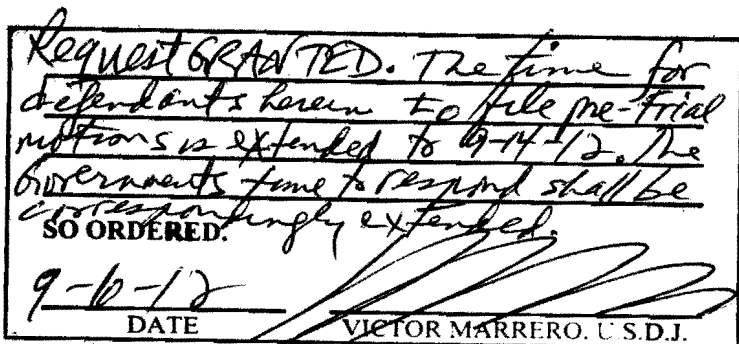 Request GRANTED. The time for
defendants herein to file pre-trial
motions is extended to 9-14-12. The
Government's time to respond shall be
correspondingly extended.
SO ORDERED.
9-6-12
DATE VICTOR MARRERO. U.S.D.J.